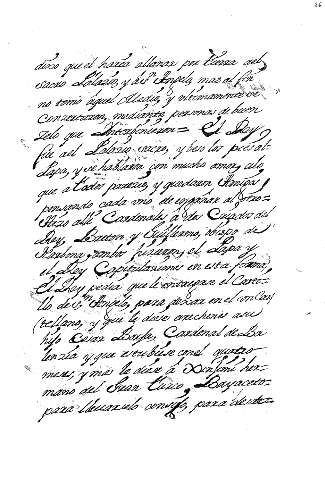 26
dixo que el haria allanar por tierra del
sacro Palazio, y S.n Angelo, mas al fin
no tomo aquel Alcides, y ultimamente se
concertaron, mediante personas de buen
zelo que Intervinieron = El Rey
fue al Palazio sacro, y beso los pies al
Papa, y se hablaron con mucho amor, a lo
que a todos parecio, y quedaron Amigos,
pensando cada uno de engañar al otro =
Hizo alli Cardenales a dos Criados del
Rey, y Guillermo, obispo de
el Papa y
el Rey Capitularon en esta forma,
El Rey pedia que le entregase el Caste-
llo de S.n Angelo, para poner en el un Cas-
tellano, y que le diese en rehenes a su
hijo Cesar Borja, Cardenal de Ba-
lenzia y que estubiese en el quatro
meses, y mas le diese a her-
mano del Gran Turco, Bayaceto,
para llevarselo consigo, para